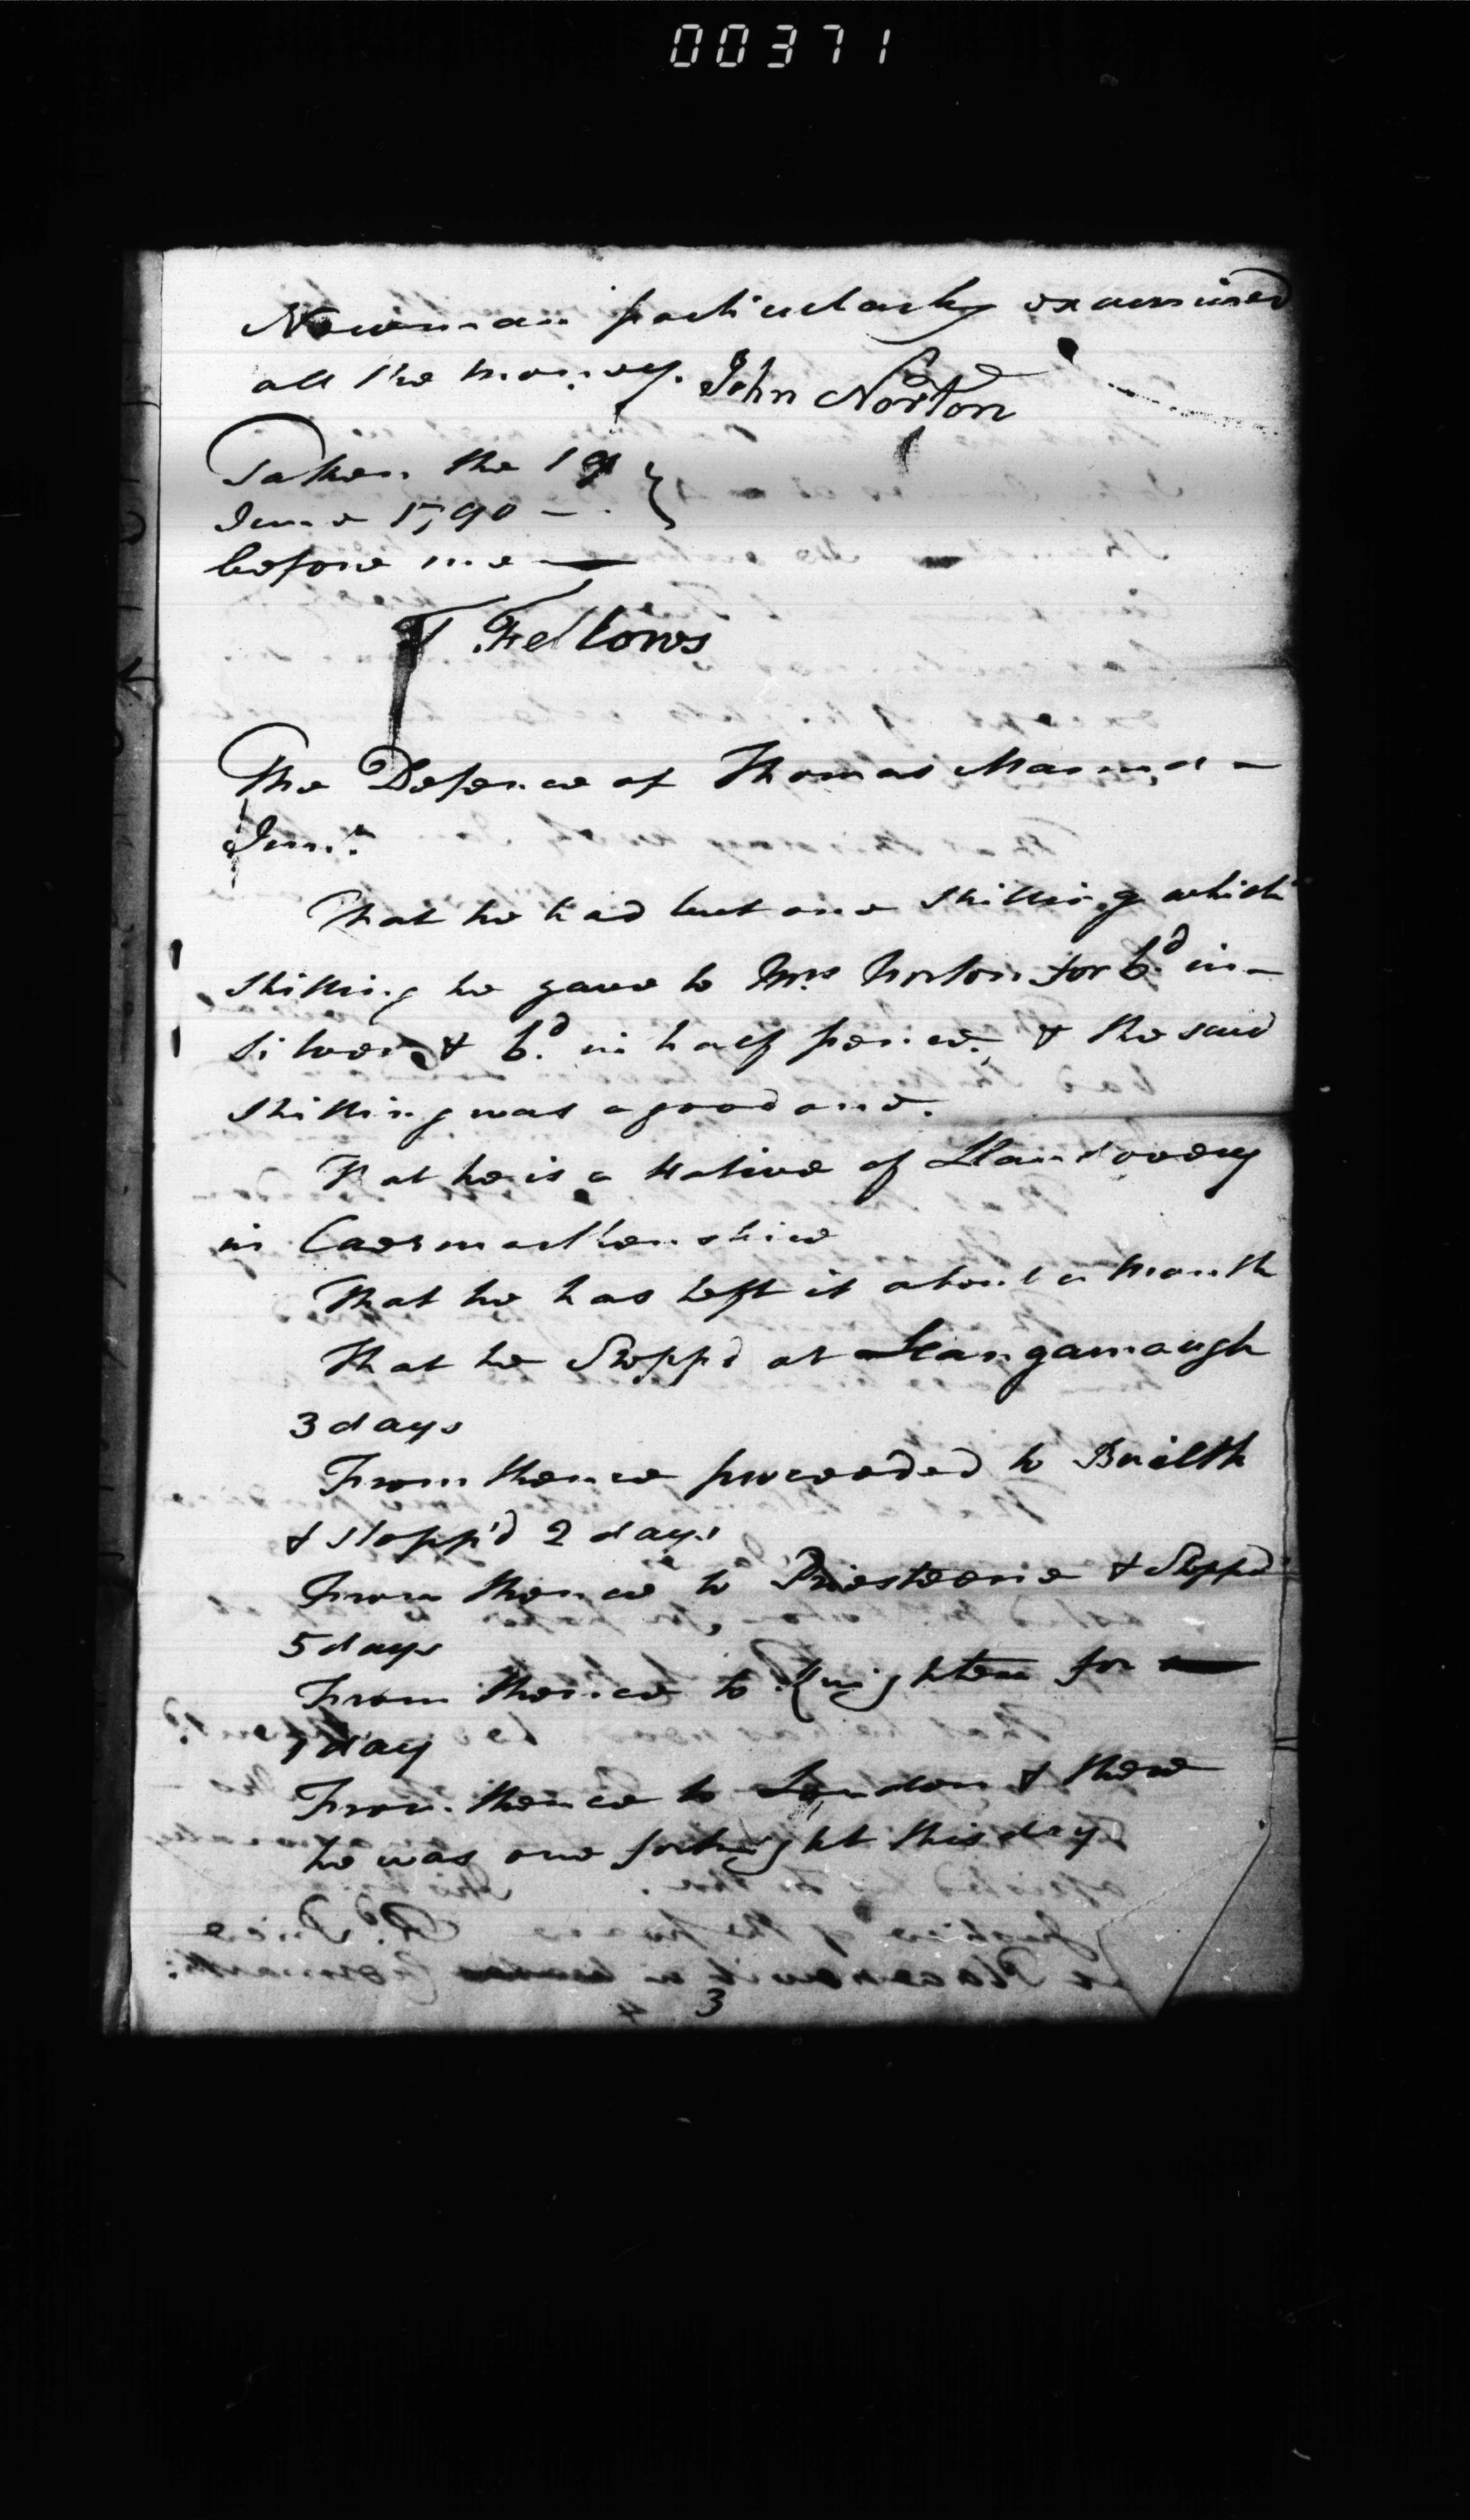 00371
Newman particularly examined
all the money. John Norton
Taken the 19
June 1790 —
before me —
T Fellows
The Defence of Thomas
Junr.
That he had but one Shilling which
Shilling he gave to Mrs Norton for 6d. in
Silver & 6d. in half pence, & the said
Shilling was a good one.
That he is a Native of Llandovery
in Caermarthenshire
That he has left it about a Month
That he Stopp'd at Llangamaugh
3 days
From thence proceeded to Builth
& Stopp'd 2 days
From thence to Priesteene & Stoppd
5 days
From thence to Knighten for
1 day
From thence to London & there
he was one fortnight this day
4 3